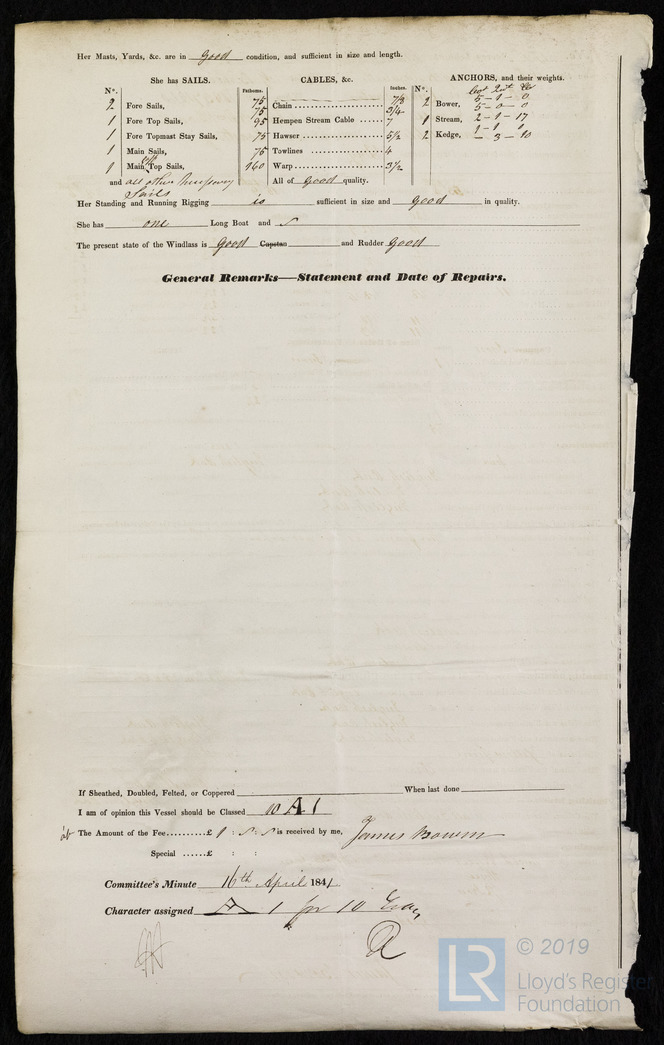 Her Masts, Yards, &c. are in good condition, and sufficient in size and length.
She has SAILS. CABLES, &c. ANCHORS, and their weights.
N°. Fathoms. Inches. N°.
2 Fore Sails, 75 Chain 7/8 2 Bower, 5 - 1 - 0
75 3/4 5 - 0 - 0
1 Fore Top Sails, 95 Hempen Stream Cable 7 1 Stream, 2 - 1 - 17
1 Fore Topmast Stay Sails, 75 Hawser 5½ 2 Kedge, 1 - 1 - 0
1 Main Sails, 75 Towlines 4 - 3 - 10
1 Main Top Sails, 160 Warp 3½
and all other necessary Sails All of good quality.
Her Standing and Running Rigging is sufficient in size and good in quality.
She has one Long Boat and
The present state of the Windlass is good Capstan and Rudder good
General Remarks—Statement and Date of Repairs.
If Sheathed, Doubled, Felted, or Coppered When last done
I am of opinion this Vessel should be Classed 10 A 1
The Amount of the Fee..........£ 1 : : is received by me, James Bowen
Special ......£ : :
Committee's Minute 16th April 1841
Character assigned A 1 for 10 Years
LR
© 2019
Lloyd's Register
Foundation